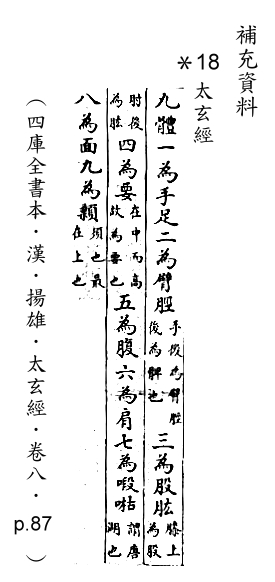 補充資料
*18 太玄經
九體一為手足二為臂脛手後為臂脛後為髀也三為股肱膝上為股
肘後為肱四為要在中而高故為要也五為腹六為肩七為㗋咶謂唐湖也
八為面九為顙也最在上也
（四庫全書本・漢・揚雄・太玄經・卷八・p.87）